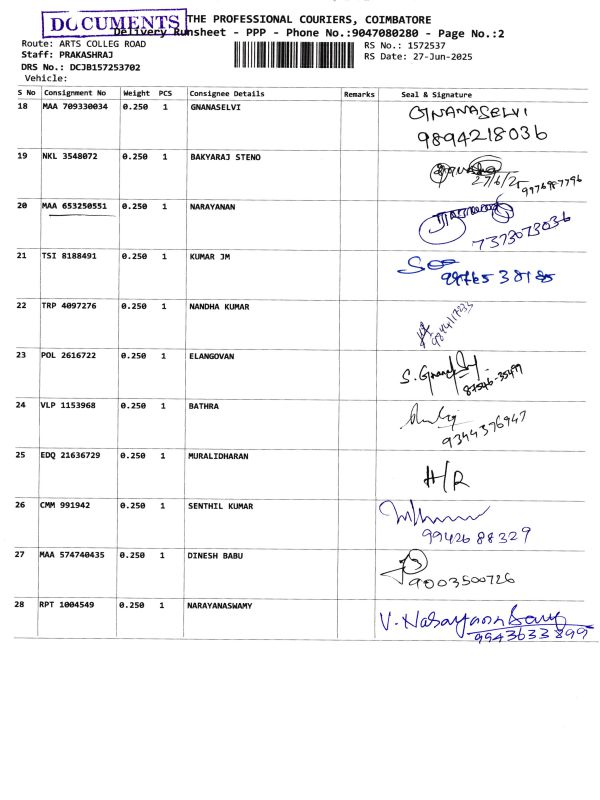 DOCUMENTS
THE PROFESSIONAL COURIERS, COIMBATORE
Delivery Runsheet - PPP - Phone No.:9047080280 - Page No.:2
Route: ARTS COLLEG ROAD
RS No.: 1572537
Staff: PRAKASHRAJ
RS Date: 27-Jun-2025
DRS No.: DCJB157253702
Vehicle:
S No Consignment No Weight PCS Consignee Details Remarks Seal & Signature
18 MAA 709330034 0.250 1 GNANASELVI GNANASELVI
9894218036
19 NKL 3548072 0.250 1 BAKYARAJ STENO
27/6/25 9976987796
20 MAA 653250551 0.250 1 NARAYANAN
7373073036
21 TSI 8188491 0.250 1 KUMAR JM
22 TRP 4097276 0.250 1 NANDHA KUMAR
23 POL 2616722 0.250 1 ELANGOVAN
24 VLP 1153968 0.250 1 BATHRA
9344376947
25 EDQ 21636729 0.250 1 MURALIDHARAN
H/R
26 CMM 991942 0.250 1 SENTHIL KUMAR
9942688329
27 MAA 574740435 0.250 1 DINESH BABU
9003500726
28 RPT 1004549 0.250 1 NARAYANASWAMY
9943633899